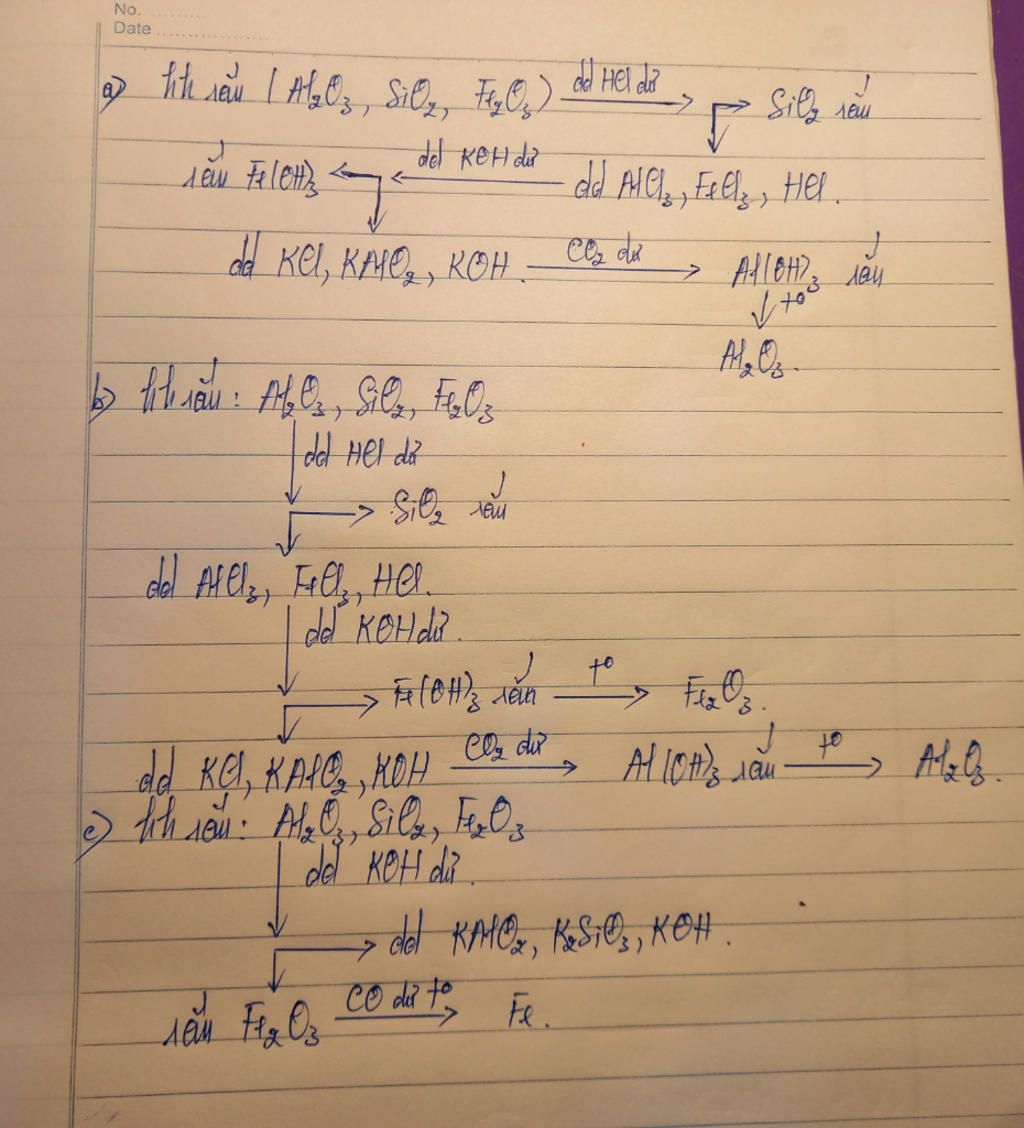 No. ..........
Date ....................
a) hh rắn (Al₂O₃, SiO₂, Fe₂O₃) dd HCl dư → SiO₂ rắn
rắn Fe(OH)₃ ← dd KOH dư dd AlCl₃, FeCl₃, HCl.
dd KCl, KAlO₂, KOH. CO₂ dư → Al(OH)₃ rắn
↓ t°
Al₂O₃.
b) hh rắn: Al₂O₃, SiO₂, Fe₂O₃
dd HCl dư
→ SiO₂ rắn
dd AlCl₃, FeCl₃, HCl.
dd KOH dư.
→ Fe(OH)₃ rắn t° → Fe₂O₃.
dd KCl, KAlO₂, KOH CO₂ dư → Al(OH)₃ rắn t° → Al₂O₃.
c) hh rắn: Al₂O₃, SiO₂, Fe₂O₃
dd KOH dư.
→ dd KAlO₂, K₂SiO₃, KOH.
rắn Fe₂O₃ CO dư t° → Fe.